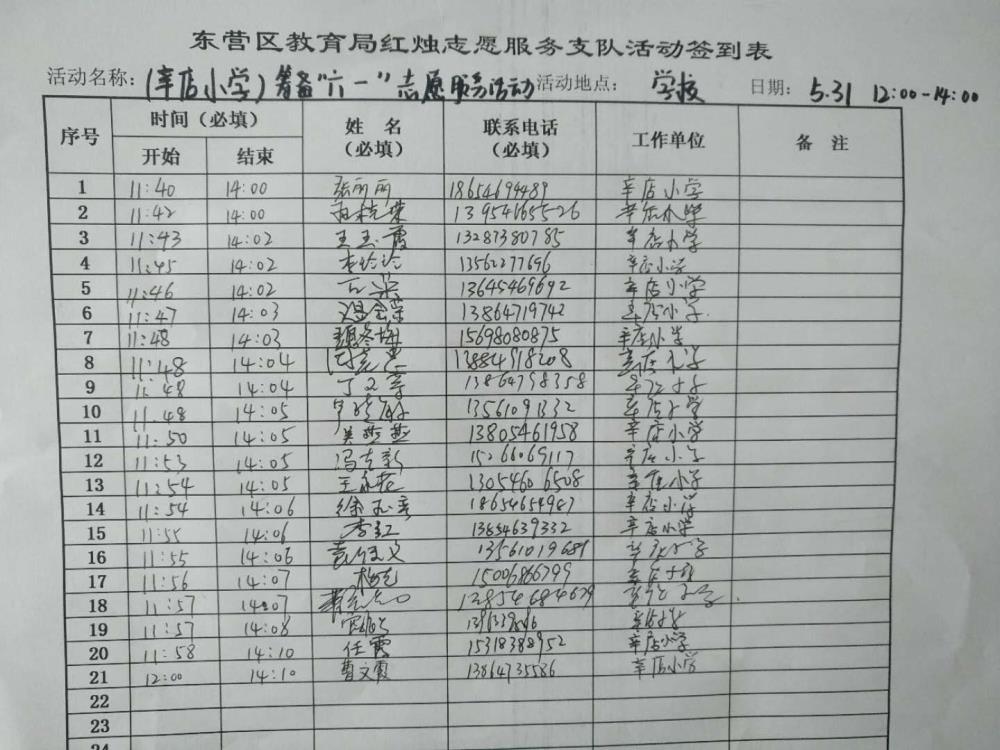 东营区教育局红烛志愿服务支队活动签到表
活动名称：(辛店小学)筹备"六一"志愿服务活动 活动地点：学校 日期：5.31 12:00-14:00
序号 时间（必填） 姓名（必填） 联系电话（必填） 工作单位 备注
开始 结束
1 11:40 14:00 张丽丽 18654694489 辛店小学
2 11:42 14:00 13954665526 辛店小学
3 11:43 14:02 王玉霞 13287380785 辛店小学
4 11:45 14:02 李玲玲 13562277696 辛店小学
5 11:46 14:02 13645469692 辛店小学
6 11:47 14:03 13864719742 辛店小学
7 11:48 14:03 魏冬梅 15698080875 辛店小学
8 11:48 14:04 13884918208 辛店小学
9 11:48 14:04 丁文 13864798358 辛店小学
10 11:48 14:05 13561091332 辛店小学
11 11:50 14:05 吴燕燕 13805461958 辛店小学
12 11:53 14:05 冯 新 15266069117 辛店小学
13 11:54 14:05 王 13054606508 辛店小学
14 11:54 14:06 徐玉 18654654987 辛店小学
15 11:55 14:06 李红 13854639332 辛店小学
16 11:55 14:06 袁 文 13561019681 辛店小学
17 11:56 14:07 杨 15006866799 辛店小学
18 11:57 14:07 辛店小学
19 11:57 14:08 辛店小学
20 11:58 14:10 任霞 15318388952 辛店小学
21 12:00 14:10 曹文霞 13864735586 辛店小学
22
23
24